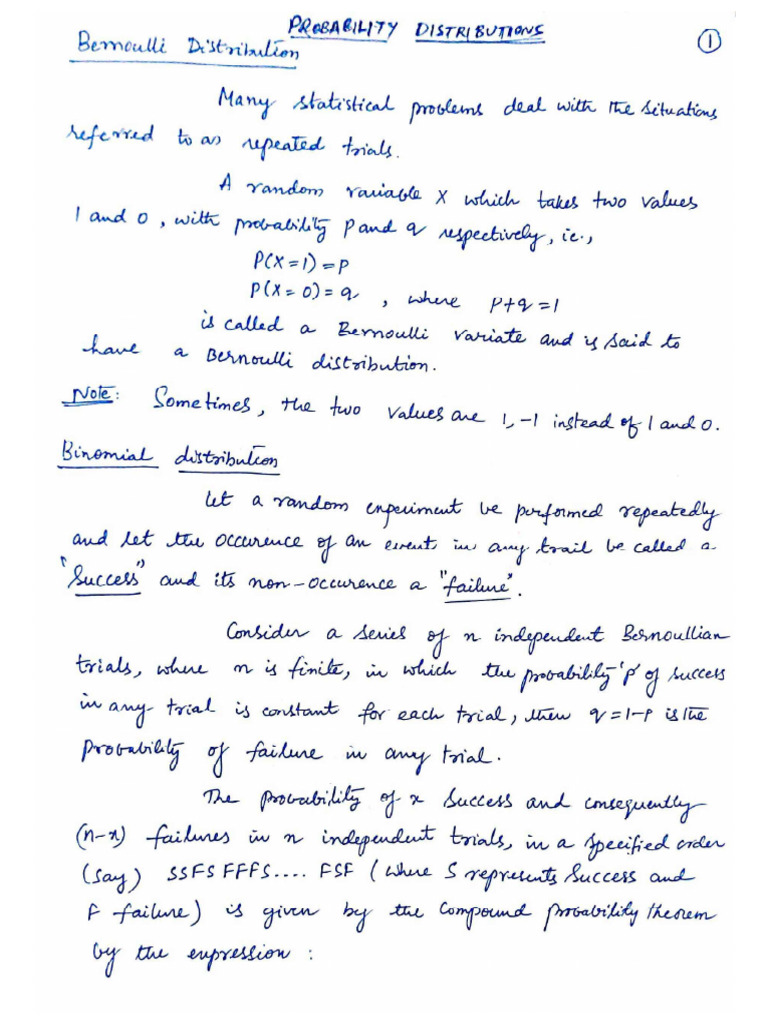 PROBABILITY DISTRIBUTIONS
1
Bernoulli Distribution
Many statistical problems deal with the situations
referred to as repeated trials.
A random variable X which takes two values
1 and 0, with probability p and q respectively, ie.,
P(X=1)=P
P(X=0)=q, where p+q=1
is called a Bernoulli variate and is said to
have a Bernoulli distribution.
Note: Sometimes, the two values are 1, -1 instead of 1 and 0.
Binomial distribution
Let a random experiment be performed repeatedly
and let the occurence of an event in any trail be called a
"Success" and its non-occurence a "failure".
Consider a series of n independent Bernoullian
trials, where n is finite, in which the probability 'p' of success
in any trial is constant for each trial, then q=1-p is the
probability of failure in any trial.
The probability of x success and consequently
(n-x) failures in n independent trials, in a specified order
(say) SSFSFFFS.... FSF (where S represents Success and
F failure) is given by the compound probability theorem
by the expression: